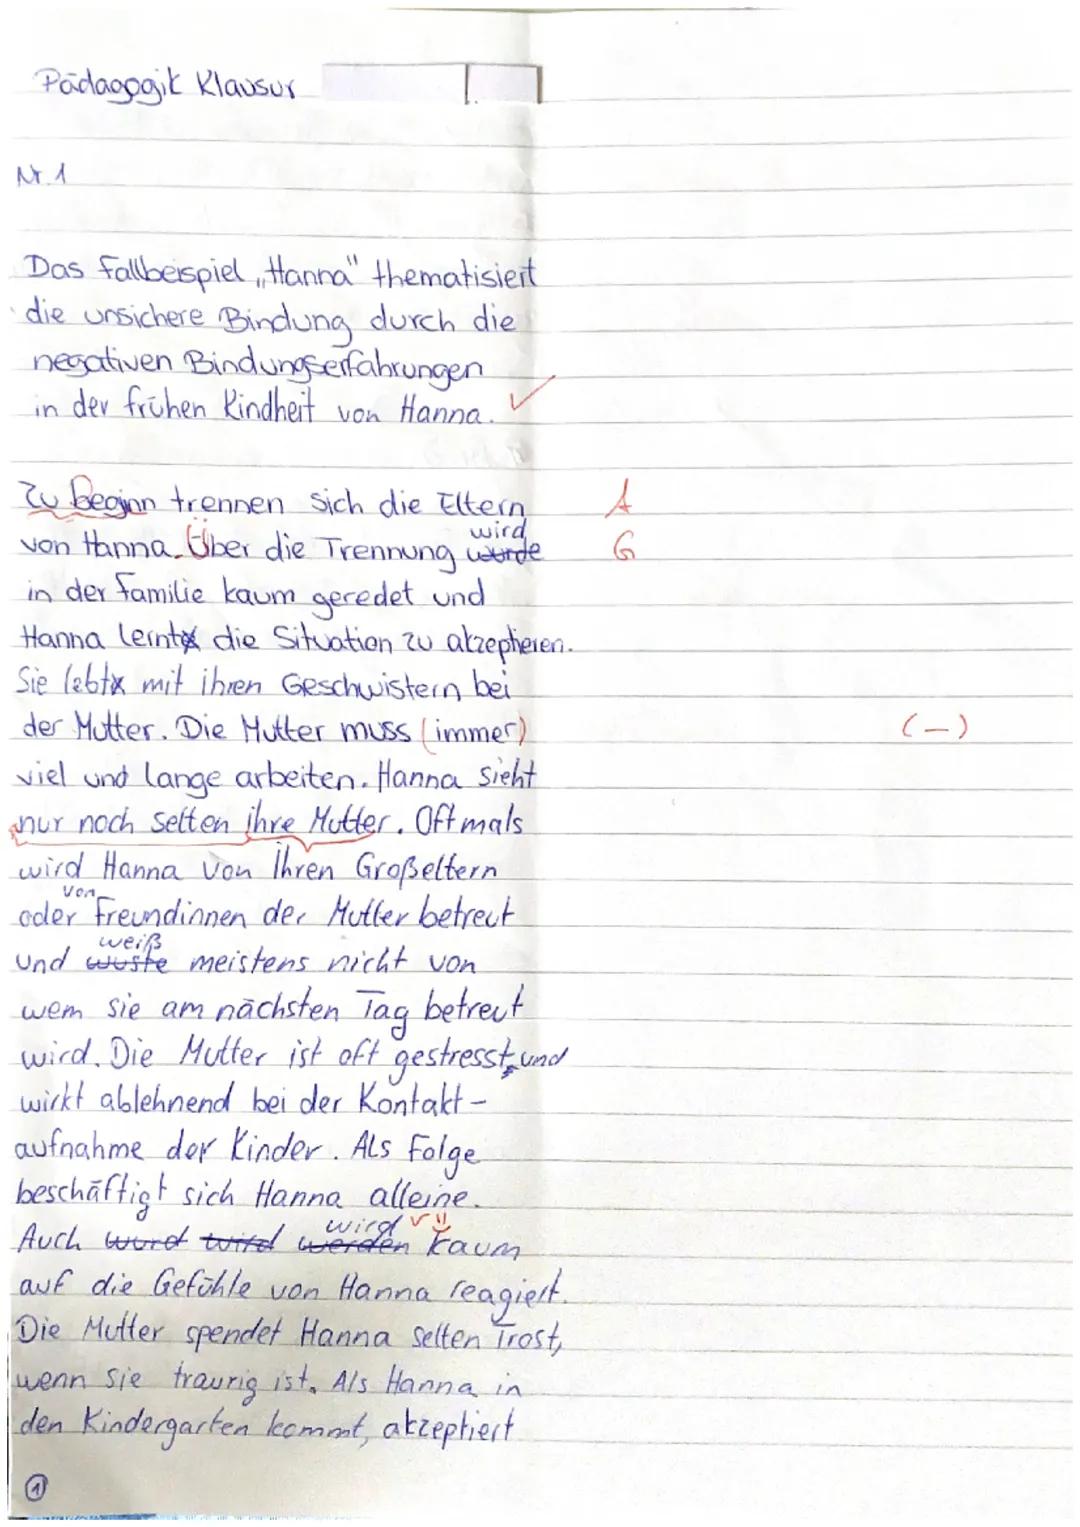 Pädagogik Klausur
Nr. 1
Das Fallbeispiel „Hanna" thematisiert
die unsichere Bindung durch die
negativen Bindungserfahrungen
in der frühen Kindheit von Hanna. ✓
Zu beginn trennen sich die Eltern A
von Hanna. Über die Trennung wurde wird G
in der Familie kaum geredet und
Hanna lernt die Situation zu akzeptieren.
Sie lebt mit ihren Geschwistern bei
der Mutter. Die Mutter muss (immer) (–)
viel und lange arbeiten. Hanna sieht
nur noch selten ihre Mutter. Oftmals
wird Hanna von Ihren Großeltern
oder von Freundinnen der Mutter betreut
und wuste weiß meistens nicht von
wem sie am nächsten Tag betreut
wird. Die Mutter ist oft gestresst und
wirkt ablehnend bei der Kontakt-
aufnahme der Kinder. Als Folge
beschäftigt sich Hanna alleine.
Auch wurd wird werden wird kaum
auf die Gefühle von Hanna reagiert.
Die Mutter spendet Hanna selten Trost,
wenn Sie traurig ist. Als Hanna in
den Kindergarten kommt, akzeptiert
1